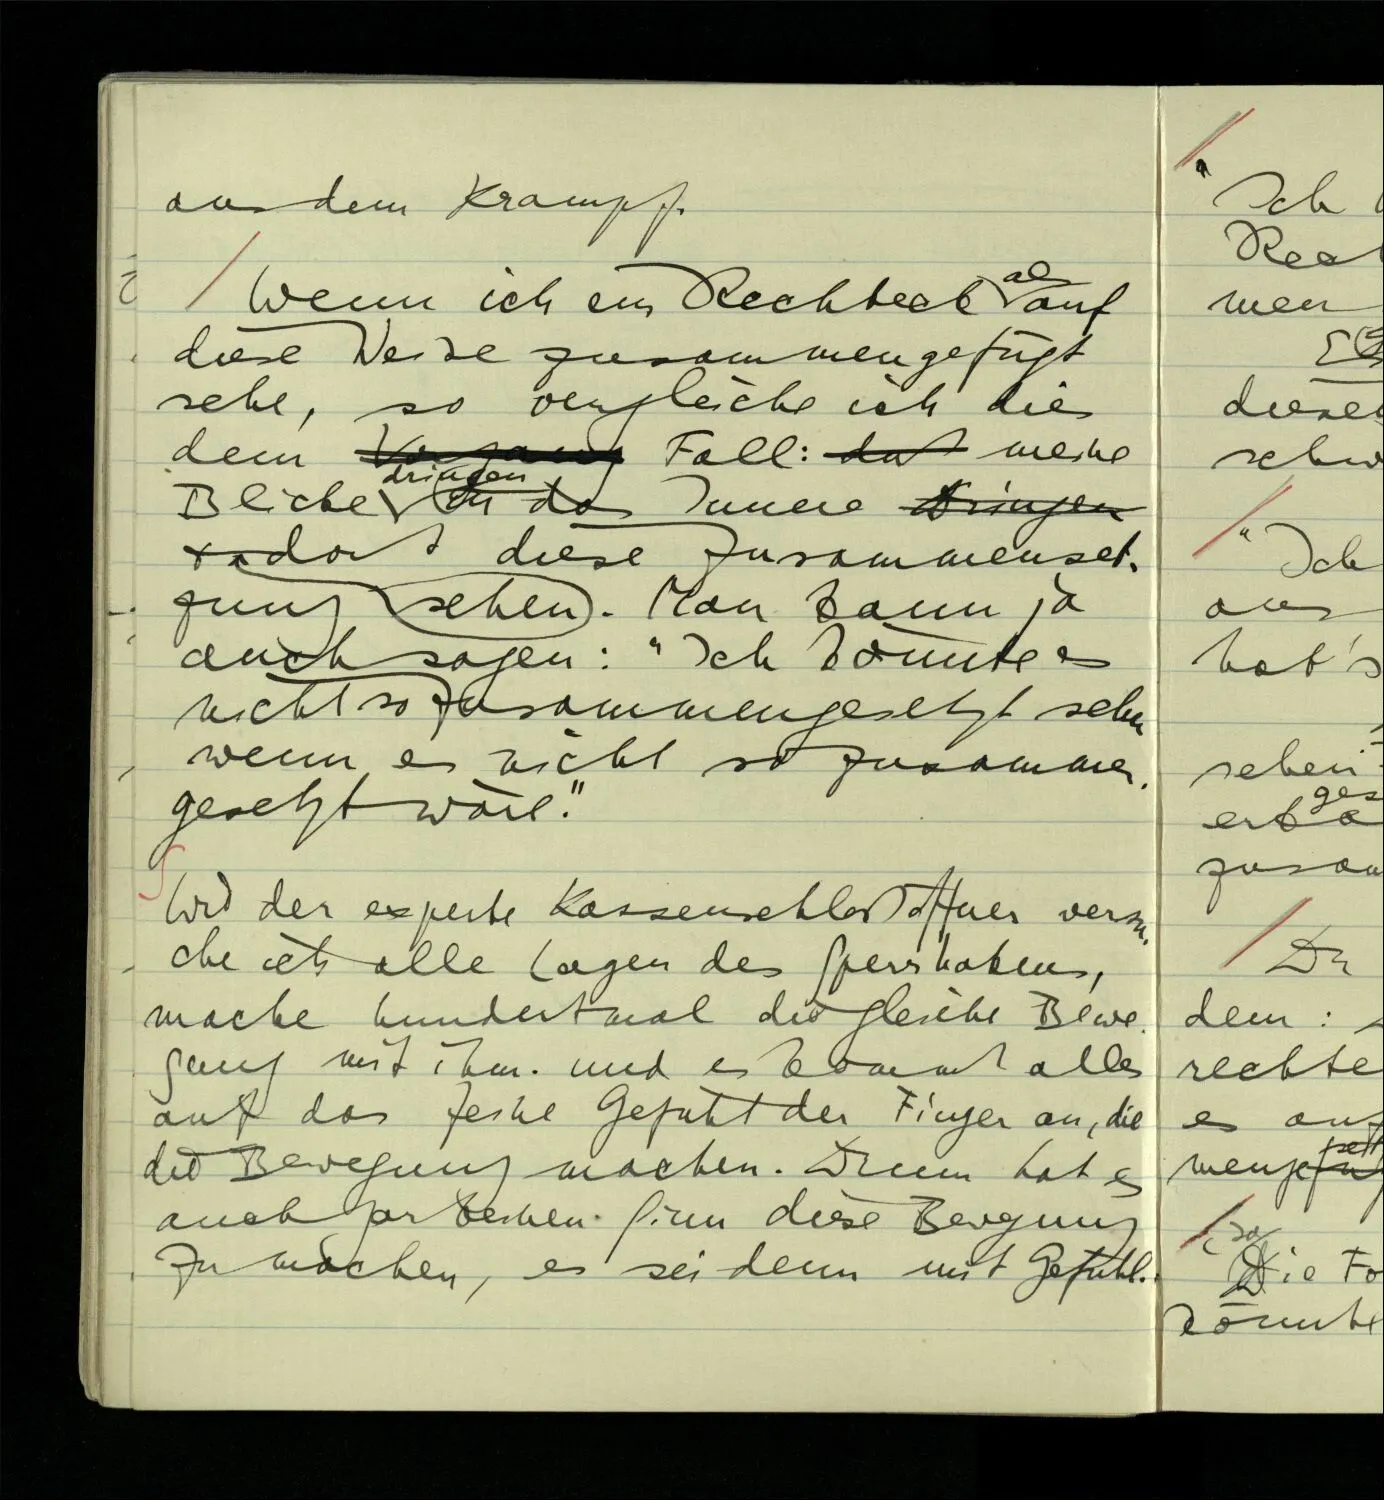 aus dem Krampf.
Wenn ich ein Rechteck als auf
diese Weise zusammengefügt
sehe, so vergleiche ich dies
dem Vorgang Fall: daß meine
Blicke dringen in das Innere dringen
dort diese Zusammenset-
zung sehen). Man kann ja
auch sagen: "Ich könnte es
nicht so zusammengesetzt sehen
wenn es nicht so zusammen-
gesetzt wäre."
Wie der experte Kassenschloßöffner versu-
che ich alle Lagen des Sperrhakens,
mache hundertmal die gleiche Bewe-
gung mit ihm. und es kommt alles
auf das feine Gefühl der Finger an, die
die Bewegung machen. Drum hat es
auch gar keinen Sinn diese Bewegung
zu machen, es sei denn mit Gefühl.
" Ich
Rech
men
diesen
schw
" Ich
aus
hat's
sehen
ges
zusam
Du
dem:
rechte
es auf
menge
so
Die Fo
könnte